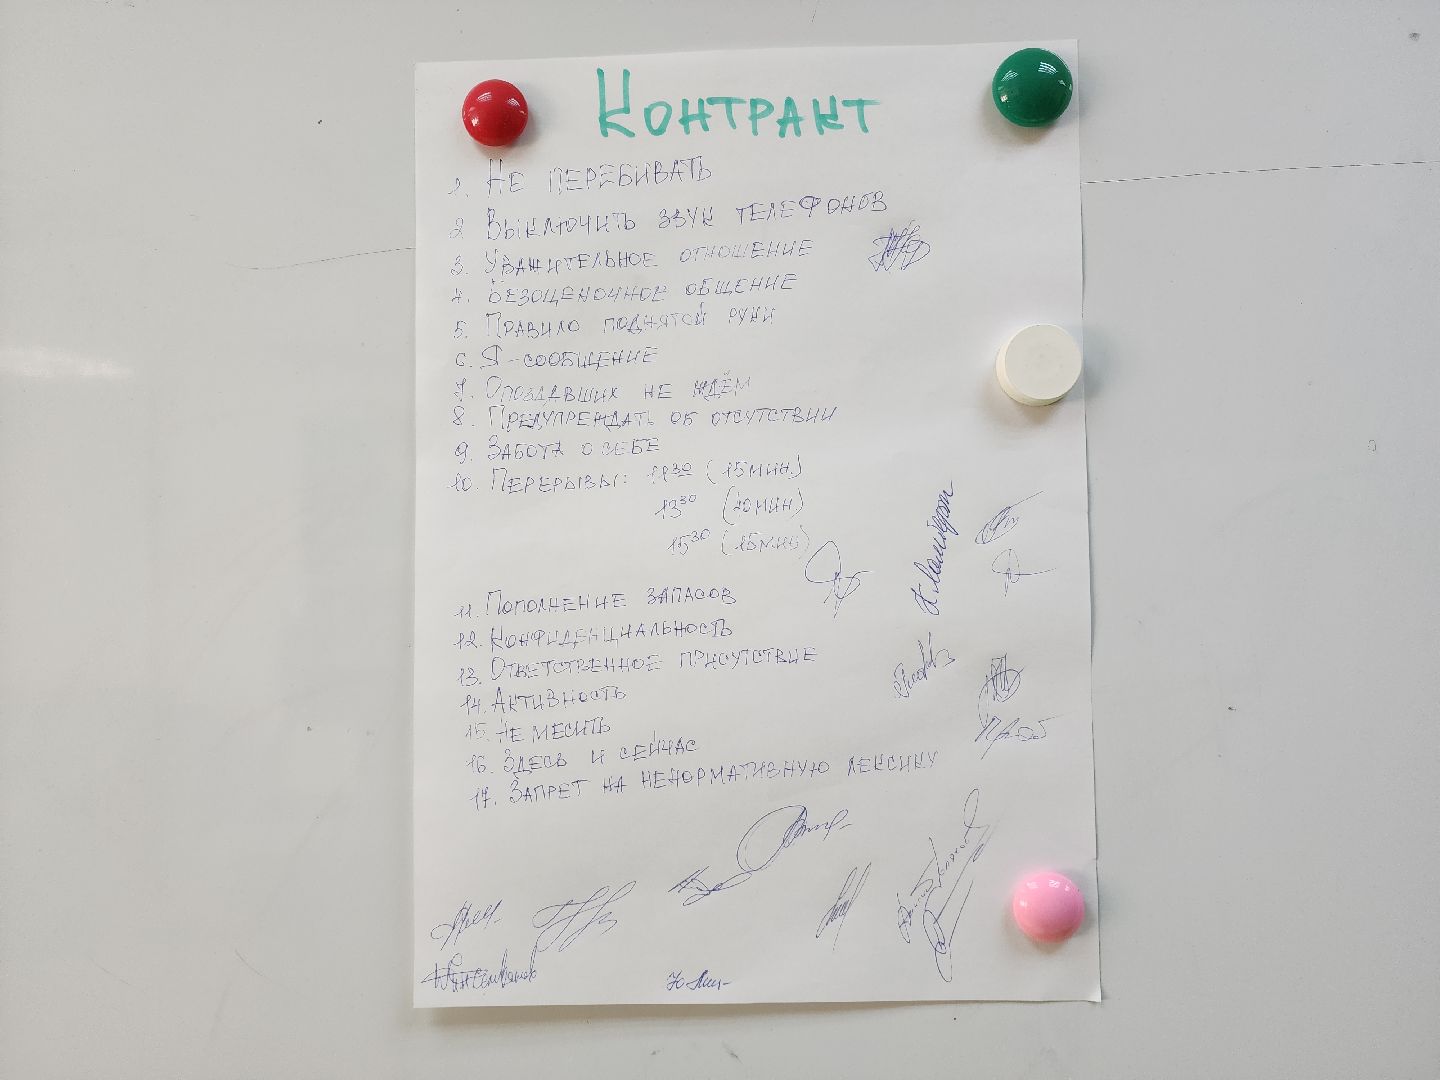 Контракт
1. Не перебивать
2. Выключить звук телефонов
3. Уважительное отношение
4. Безоценочное общение
5. Правило поднятой руки
6. Я-сообщение
7. Опоздавших не ждём
8. Предупреждать об отсутствии
9. Забота о себе
10. Перерывы: 11 30 (15 мин.)
13 30 (20 мин)
15 30 (15 мин)
11. Пополнение запасов
12. Конфиденциальность
13. Ответственное присутствие
14. Активность
15. Не месить
16. Здесь и сейчас
17. Запрет на ненормативную лексику